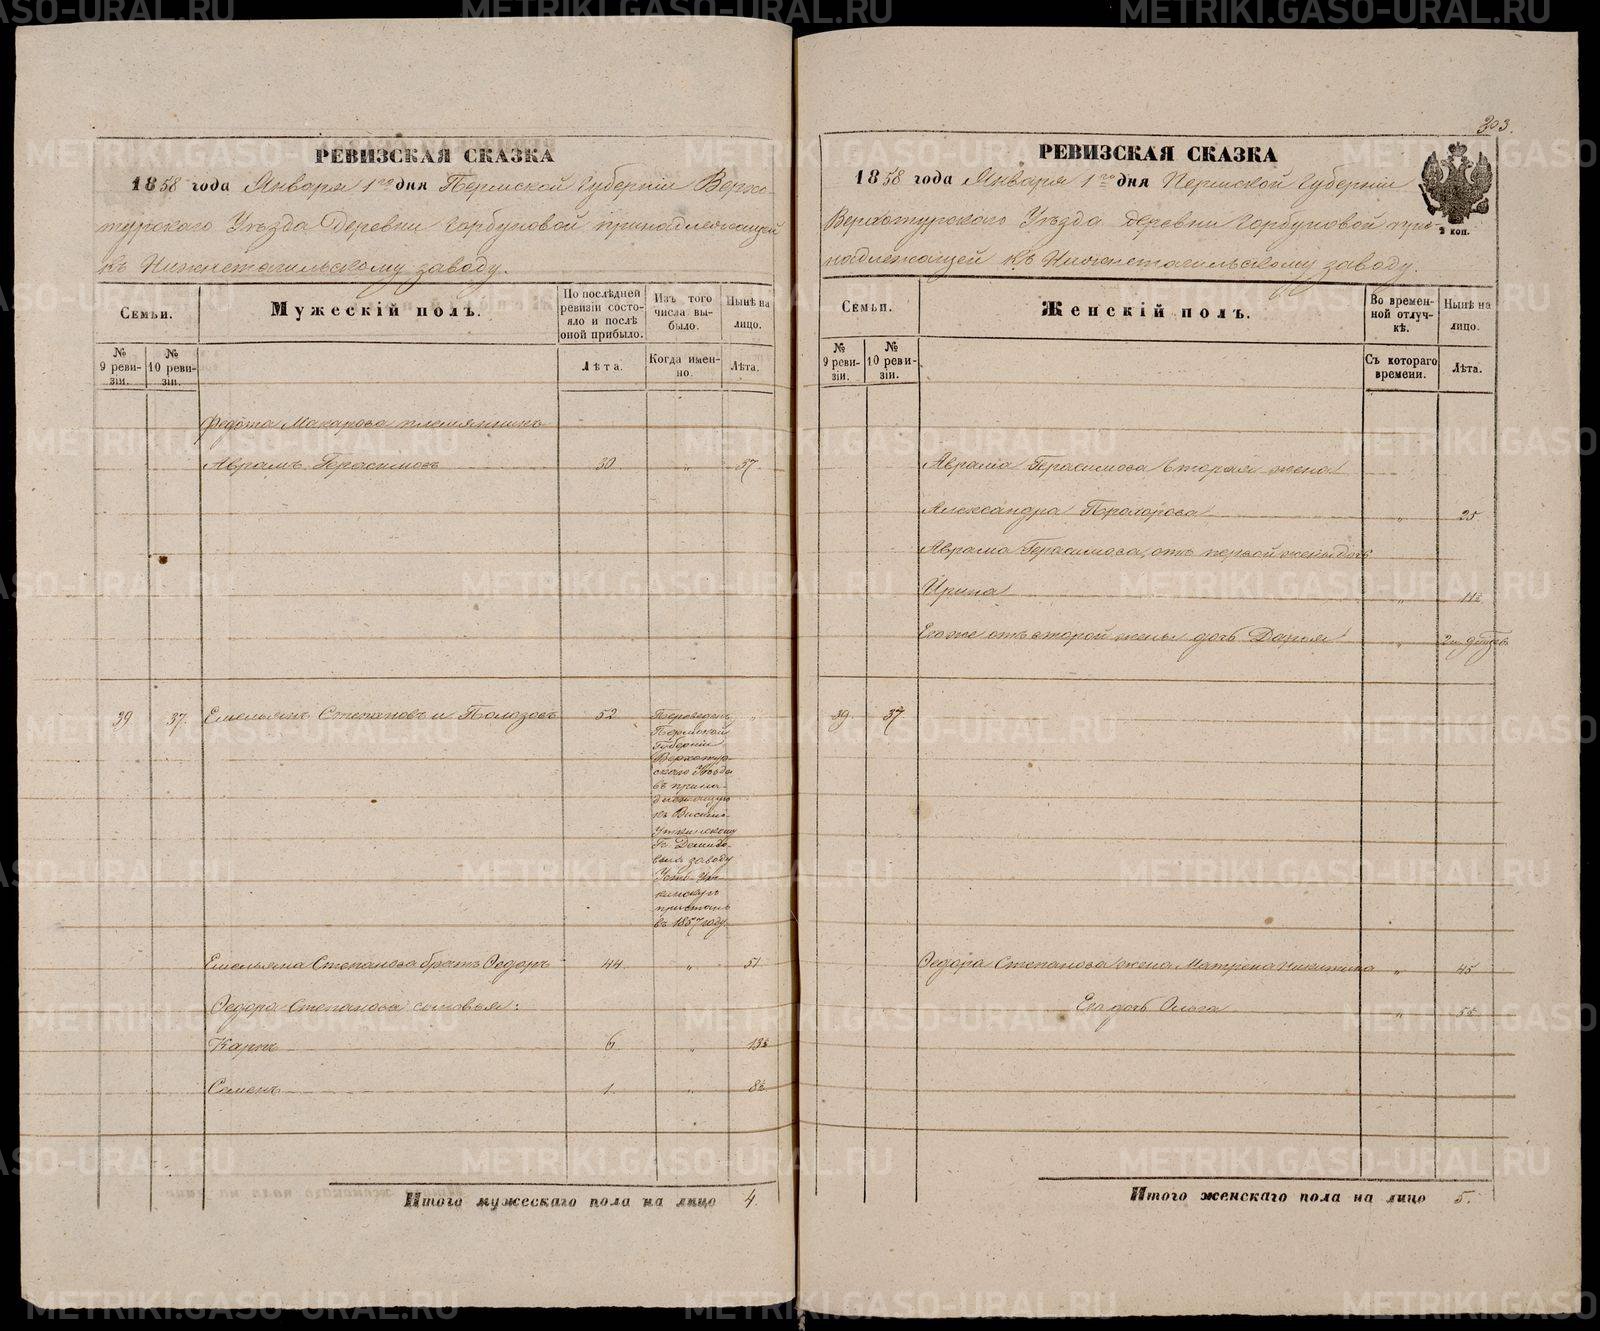 РЕВИЗСКАЯ СКАЗКА
1858 года Января 1го дня Пермской Губернiи Верхо-
турского Уѣзда Деревни Горбуновой принадлежащей
къ Нижнетагильскому заводу.
Семьи.
Мужескiй полъ.
По послѣдней ревизiи состояло и послѣ оной прибыло.
Изъ того числа выбыло.
Нынѣ на лицо.
№ 9 ревизiи.
№ 10 ревизiи.
Лѣта.
Когда именно.
Лѣта.
Федота Макарова племянникъ
Аврамъ Герасимовъ 30 „ 37
39 37. Емельянъ Степановъ и Полозовъ 52
Переведенъ
Пермской
Губернiи
Верхотур-
скаго Уѣзда
въ прина-
длежащую
къ Висимо-
Уткинскому
Гг. Демидо-
выхъ заводу
Усть-Ут-
кинскую
пристань
въ 1857 году.
Емельяна Степанова братъ Ѳедоръ 44 „ 51
Ѳедора Степанова сыновья:
Карпъ 6 „ 13½
Семенъ 1. „ 8½
Итого мужескаго пола на лицо 4.
303.
РЕВИЗСКАЯ СКАЗКА
1858 года Января 1го дня Пермской Губернiи
Верхотурского Уѣзда деревни Горбуновой при-
надлежащей къ Нижнетагильскому заводу.
2 коп.
Семьи.
Женскiй полъ.
Во временной отлучкѣ.
Нынѣ на лицо.
№ 9 ревизiи.
№ 10 ревизiи.
Съ котораго времени.
Лѣта.
Аврама Герасимова вторая жена
Александра Прохорова „ 25
Аврама Герасимова, отъ первой жены дочь
Ирина „ 11½
Его же отъ второй жены дочь Дарья „
39. 37
Ѳедора Степанова жена Матрена Никитина „ 45
Его дочь Ольга „ 5½
Итого женскаго пола на лицо 5.
METRIKI.GASO-URAL.RU